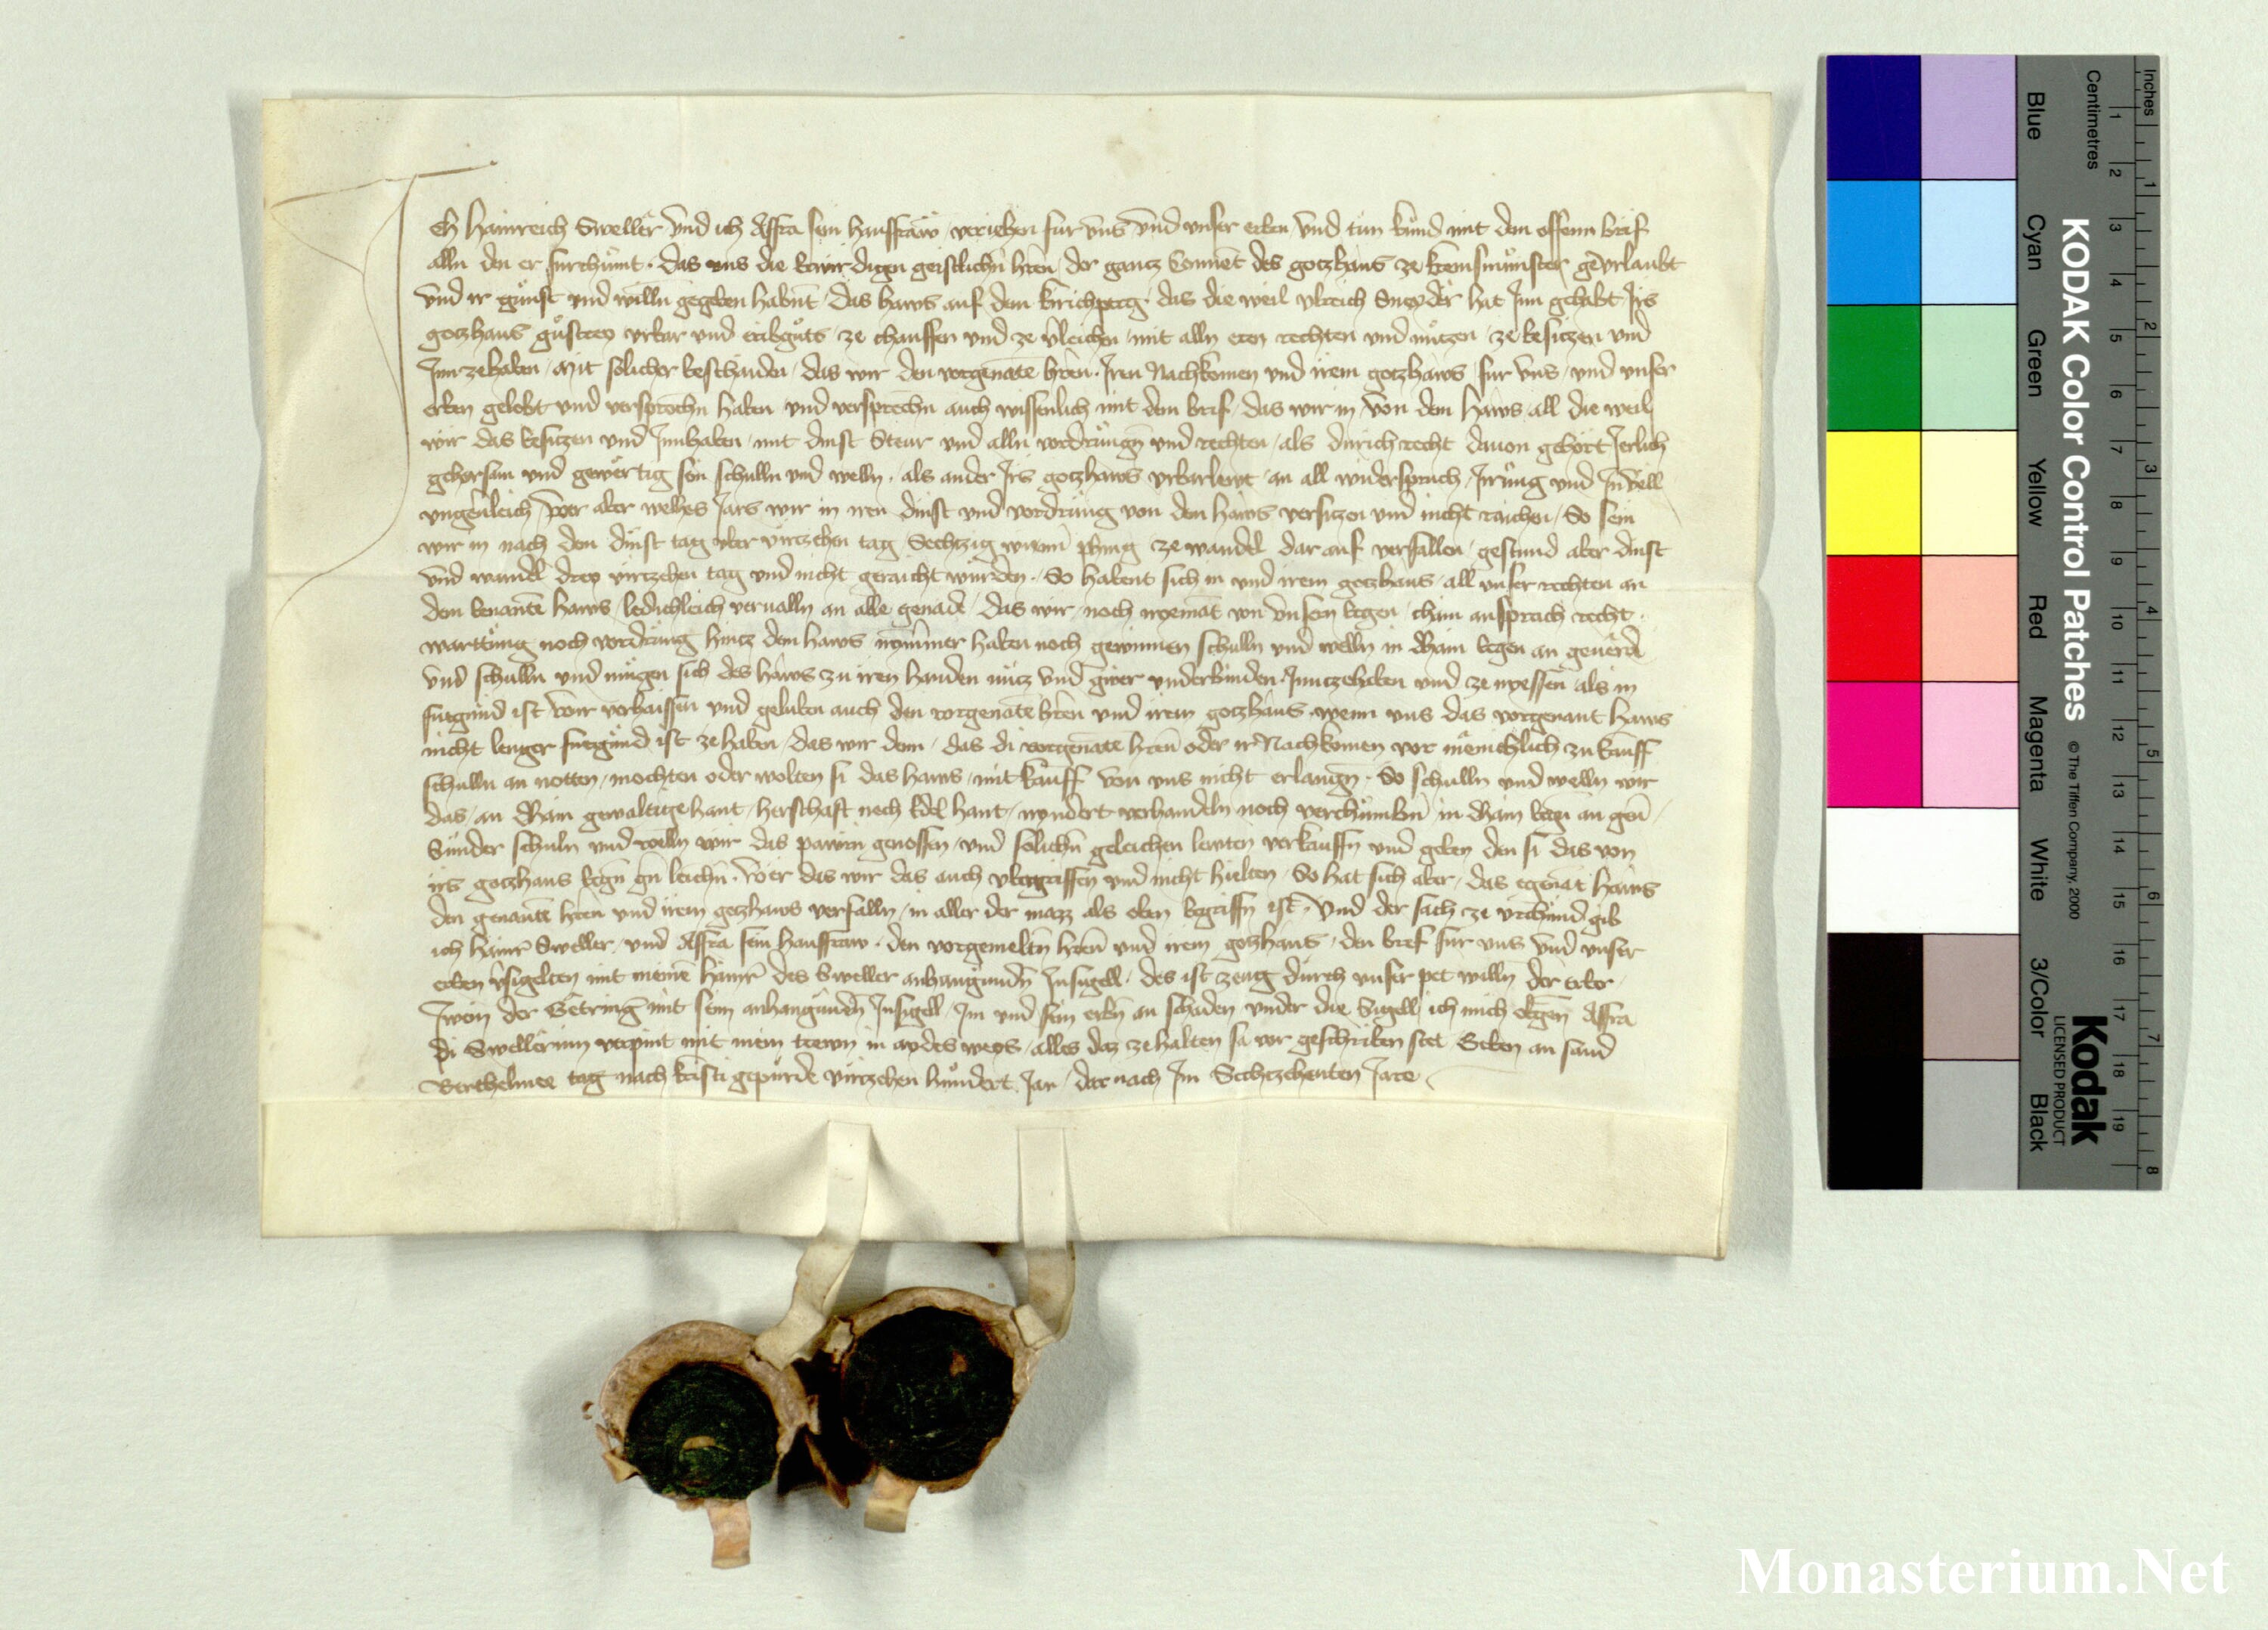 Ich Hainreich Sweller vnd ich Affra sein hausfraw veriehen fur vns vnd vnser erben vnd tun kund mit dem offenn brif
alln den er furchumt das vns die erwirdigen geistlichn hren der gancz Conuent des gotzhaus ze kremsmunster gevrlaubt
vnd ir gunst vnd willn gegeben habnt das haws auf dem kirichperg das die weil vlreich Sneyder hat Inn gehabt Irs
gotzhaus vrbar vnd eribguts ze chauffen vnd ze vleichen mit alln eren rechten vnd nutzen ze besitzen vnd
Inn zehaben Mit solicher beschaiden das wir den vorgenate hren Iren Nachkomen vnd irem gotzhaws fur vns vnd vnser
erben gelobt vnd versprochn haben vnd versprechn auch wissenlich mit dem brif das wir in von dem haws all die weil
wir das besitzen vnd Innhaben mit dinst Steur vnd alln vordrungn vnd rechten als durich recht dauon gehort Jerlich
gehorsam vnd gewertig sein schulln vnd welln als ander Irs gotzhaws vrbarlewt an all widerspruch Irrung vnd Inuell
vngeuleich Wer aber welhes Jars wir in iren dinst vnd vordrung von dem haws versitzen vnd nicht raichen So sein
wir in nach dem dinst tag vber virtzehen tag Sechtzig wienn phning ze wandel dar auf verfallen gestund aber dinst
vnd wandl drey virtzehen tag vnd nicht geraicht wurden So habent sich in vnd irem gotzhaus all vnser rechten an
dem benante haws ledichleich veruallen an alle genade das wir noch nyemat von vnsern wegen chain ansprach recht
warttung noch vordrung hintz dem haws nymmer haben noch gewinnen schulln vnd welln in chain wegen an geuerd
vnd schulln vnd mugen sich des haws zu iren handen nutz vnd gwer vnderbinden Inntzehaben vnd ze nyessen als in
fuegund ist Wir verhaissen vnd geluben auch den vorgenate hren vnd irem gotzhaus wenn vns das vorgenant haws
nicht lenger fuegund ist ze haben das wir dem das di vorgenate hren oder ir Nachkomen vor manichlich zu kauff
schulln an notten mochten oder wolten si das haws mit kauff von vns nicht erlangn So schulln vnd welln wir
das an chain gewaltige hant herschaft noch Edel hant nyndert verhandeln noch verchumbern in chain wegn an geu
Sunder schuln vnd welln wir das pawrn genossen vnd solichn geleichen lewten verkauffn vnd geben den si das von
irs gotzhaus wegn gn leichn Wer das wir das auch vbergriffen vnd nicht hielten So hat sich aber das egenat haws
den genante hren vnd irem gotzhaws verfalln in aller der mazz als oben begriffn ist Vnd der sach ze vrchund gib
ich Hainr Sweller vnd Affra sein hausfraw den vorgemeltn hren vnd irem gotzhaus den brief fur vns vnd vnser
erben vsigelten mit meine Hainr des Sweller anhangundn Insigell des ist zeug durch vnser pet willn der erber
der mit seim anhangunden Insigell Im vnd sein erbn an schaden vnder die Sigell ich mich obgen Affra
di Swellerinn verpint mit mein trewn in aydes weys alles daz ze halten so vor geschriben stet Geben an sand
Berthelmes tag nach kristi gepurde virtzehen hundert Jar dar nach Im Sechtzehenten Jare
KODAK Color Control Patches
© The Tiffen Company, 2000
Kodak
LICENSED PRODUCT
Inches
Centimetres
Blue
Cyan
Green
Yellow
Red
Magenta
White
3/Color
Black
1 2 3 4 5 6 7 8 9 10 11 12 13 14 15 16 17 18 19
1 2 3 4 5 6 7 8
Monasterium.Net